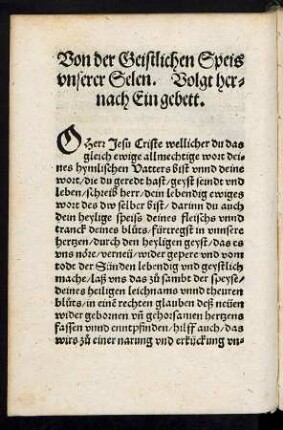 Von der Geistlichen Speis
vnserer Selen. Volgt her-
nach Ein gebett.
O Herr Jesu Criste wellicher du das
gleich ewige allmechtige wort dei-
nes hymlischen Vatters bist vnnd deine
wort/die du geredt hast/geyst seindt vnd
leben/schreib herr/dein lebendig ewiges
wort des dw selber bist/darinn du auch
dein heylige speiss deines fleischs vnnd
tranck deines blůts/fürtregst in vnnsere
hertzen/durch den heyligen geyst/das es
vns nöre/verneü/wider gepere vnd vom
todt der Sünden lebendig vnd geystlich
mache/laß vns das zů sambt der speyse/
deines heiligen leichnams vnnd theuren
blůts/in einē rechten glauben deß neüen
wider gebornen vn̄ gehorsamen hertzens
fassen vnnd enntpfinden/hilff auch/das
wirs zů einer narung vnd erkückung vn-